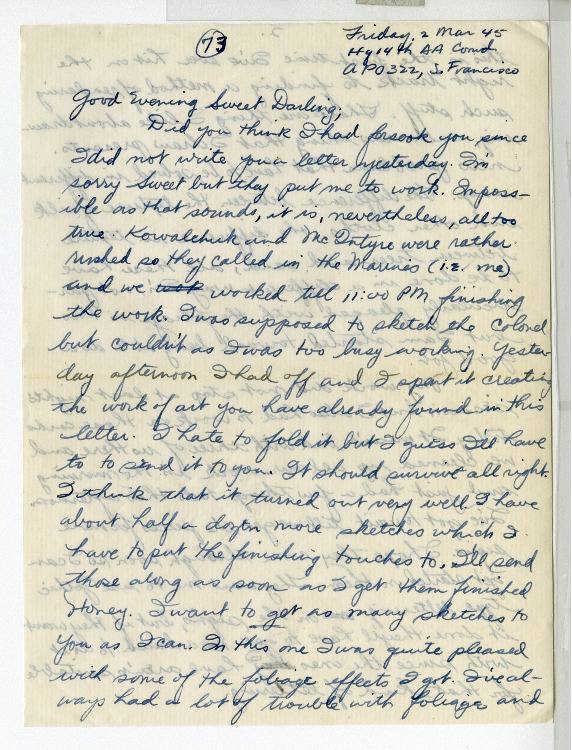 73
Friday, 2 Mar 45
Hq 14th AA Comd
APO 322, S. Francisco
Good Evening Sweet Darling;
Did you think I had forsook you since
I did not write you a letter yesterday. I'm
sorry Sweet but they put me to work. Imposs-
ible as that sounds, it is, nevertheless, all too
true. Kowalchuk and McIntyre were rather
rushed so they called in the Marines (i.e. me)
and we worked till 11:00 PM finishing
the work. I was supposed to sketch the Colonel
but couldn't as I was too busy working. Yester-
day afternoon I had off and I spent it creating
the work of art you have already found in this
letter. I hate to fold it but I guess I'll have
to to send it to you. It should survive all right.
I think that it turned out very well. I have
about half a dozen more sketches which I
have to put the finishing touches to. I'll send
those along as soon as I get them finished
Honey. I want to get as many sketches to
you as I can. In this one I was quite pleased
with some of the foliage effects I got. I've al-
ways had a lot of trouble with foliage and